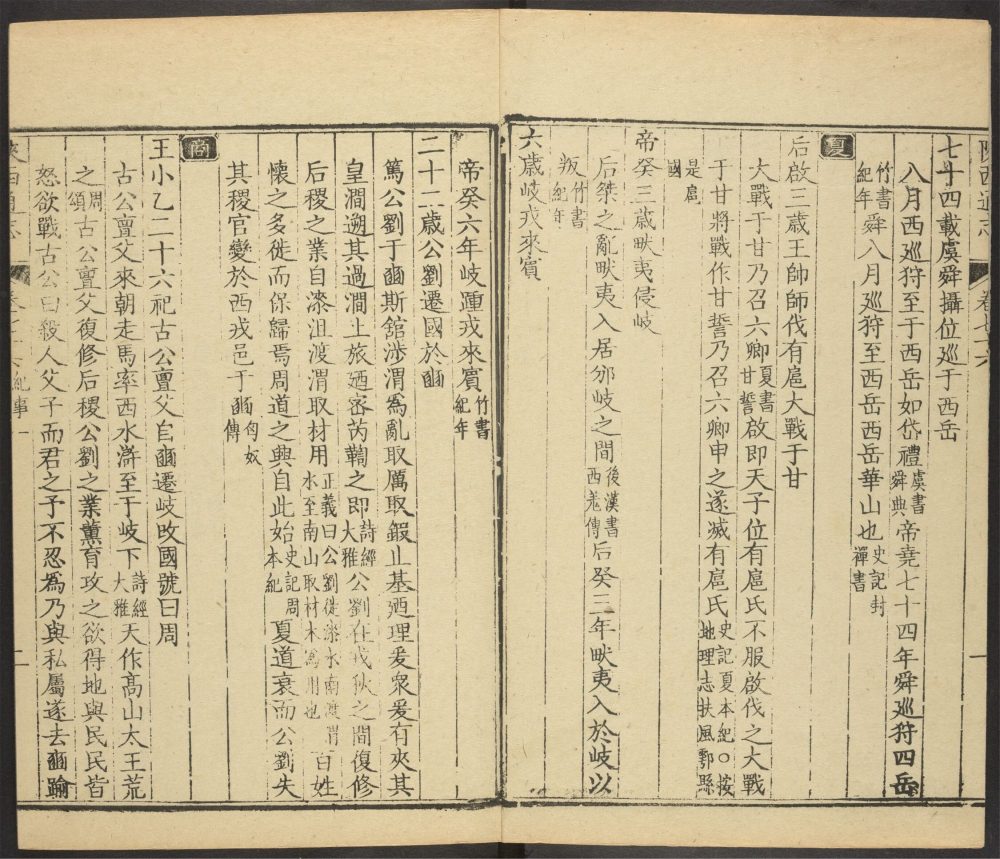 陝西通志 卷七十六
七十四載虞舜攝位巡于西岳
八月西巡狩至于西岳如岱禮虞書舜典帝堯七十四年舜巡狩四岳
竹書紀年舜八月巡狩至西岳西岳華山也史記封禪書
夏
后啟三歲王帥師伐有扈大戰于甘
大戰于甘乃召六卿夏書甘誓啟即天子位有扈氏不服啟伐之大戰
于甘將戰作甘誓乃召六卿申之遂滅有扈氏史記夏本紀○按地理志扶風鄠縣
是扈國
帝癸三歲畎夷侵岐
后桀之亂畎夷入居邠岐之間後漢書西羌傳后癸三年畎夷入於岐以
叛竹書紀年
六歲岐戎來賓
帝癸六年岐踵戎來賓竹書紀年
二十二歲公劉遷國於豳
篤公劉于豳斯館涉渭為亂取厲取鍜止基廼理爰衆爰有夾其
皇澗遡其過澗止旅廼密芮鞫之即詩經大雅公劉在戎狄之間復修
后稷之業自漆沮渡渭取材用正義曰公劉從漆水南渡渭水至南山取材木為用也百姓
懷之多徙而保歸焉周道之興自此始史記周本紀夏道衰而公劉失
其稷官變於西戎邑于豳匈奴傳
商
王小乙二十六祀古公亶父自豳遷岐改國號曰周
古公亶父來朝走馬率西水滸至于岐下詩經大雅天作高山太王荒
之周頌古公亶父復修后稷公劉之業薰育攻之欲得地與民民皆
怒欲戰古公曰殺人父子而君之予不忍為乃與私屬遂去豳踰
紀事一